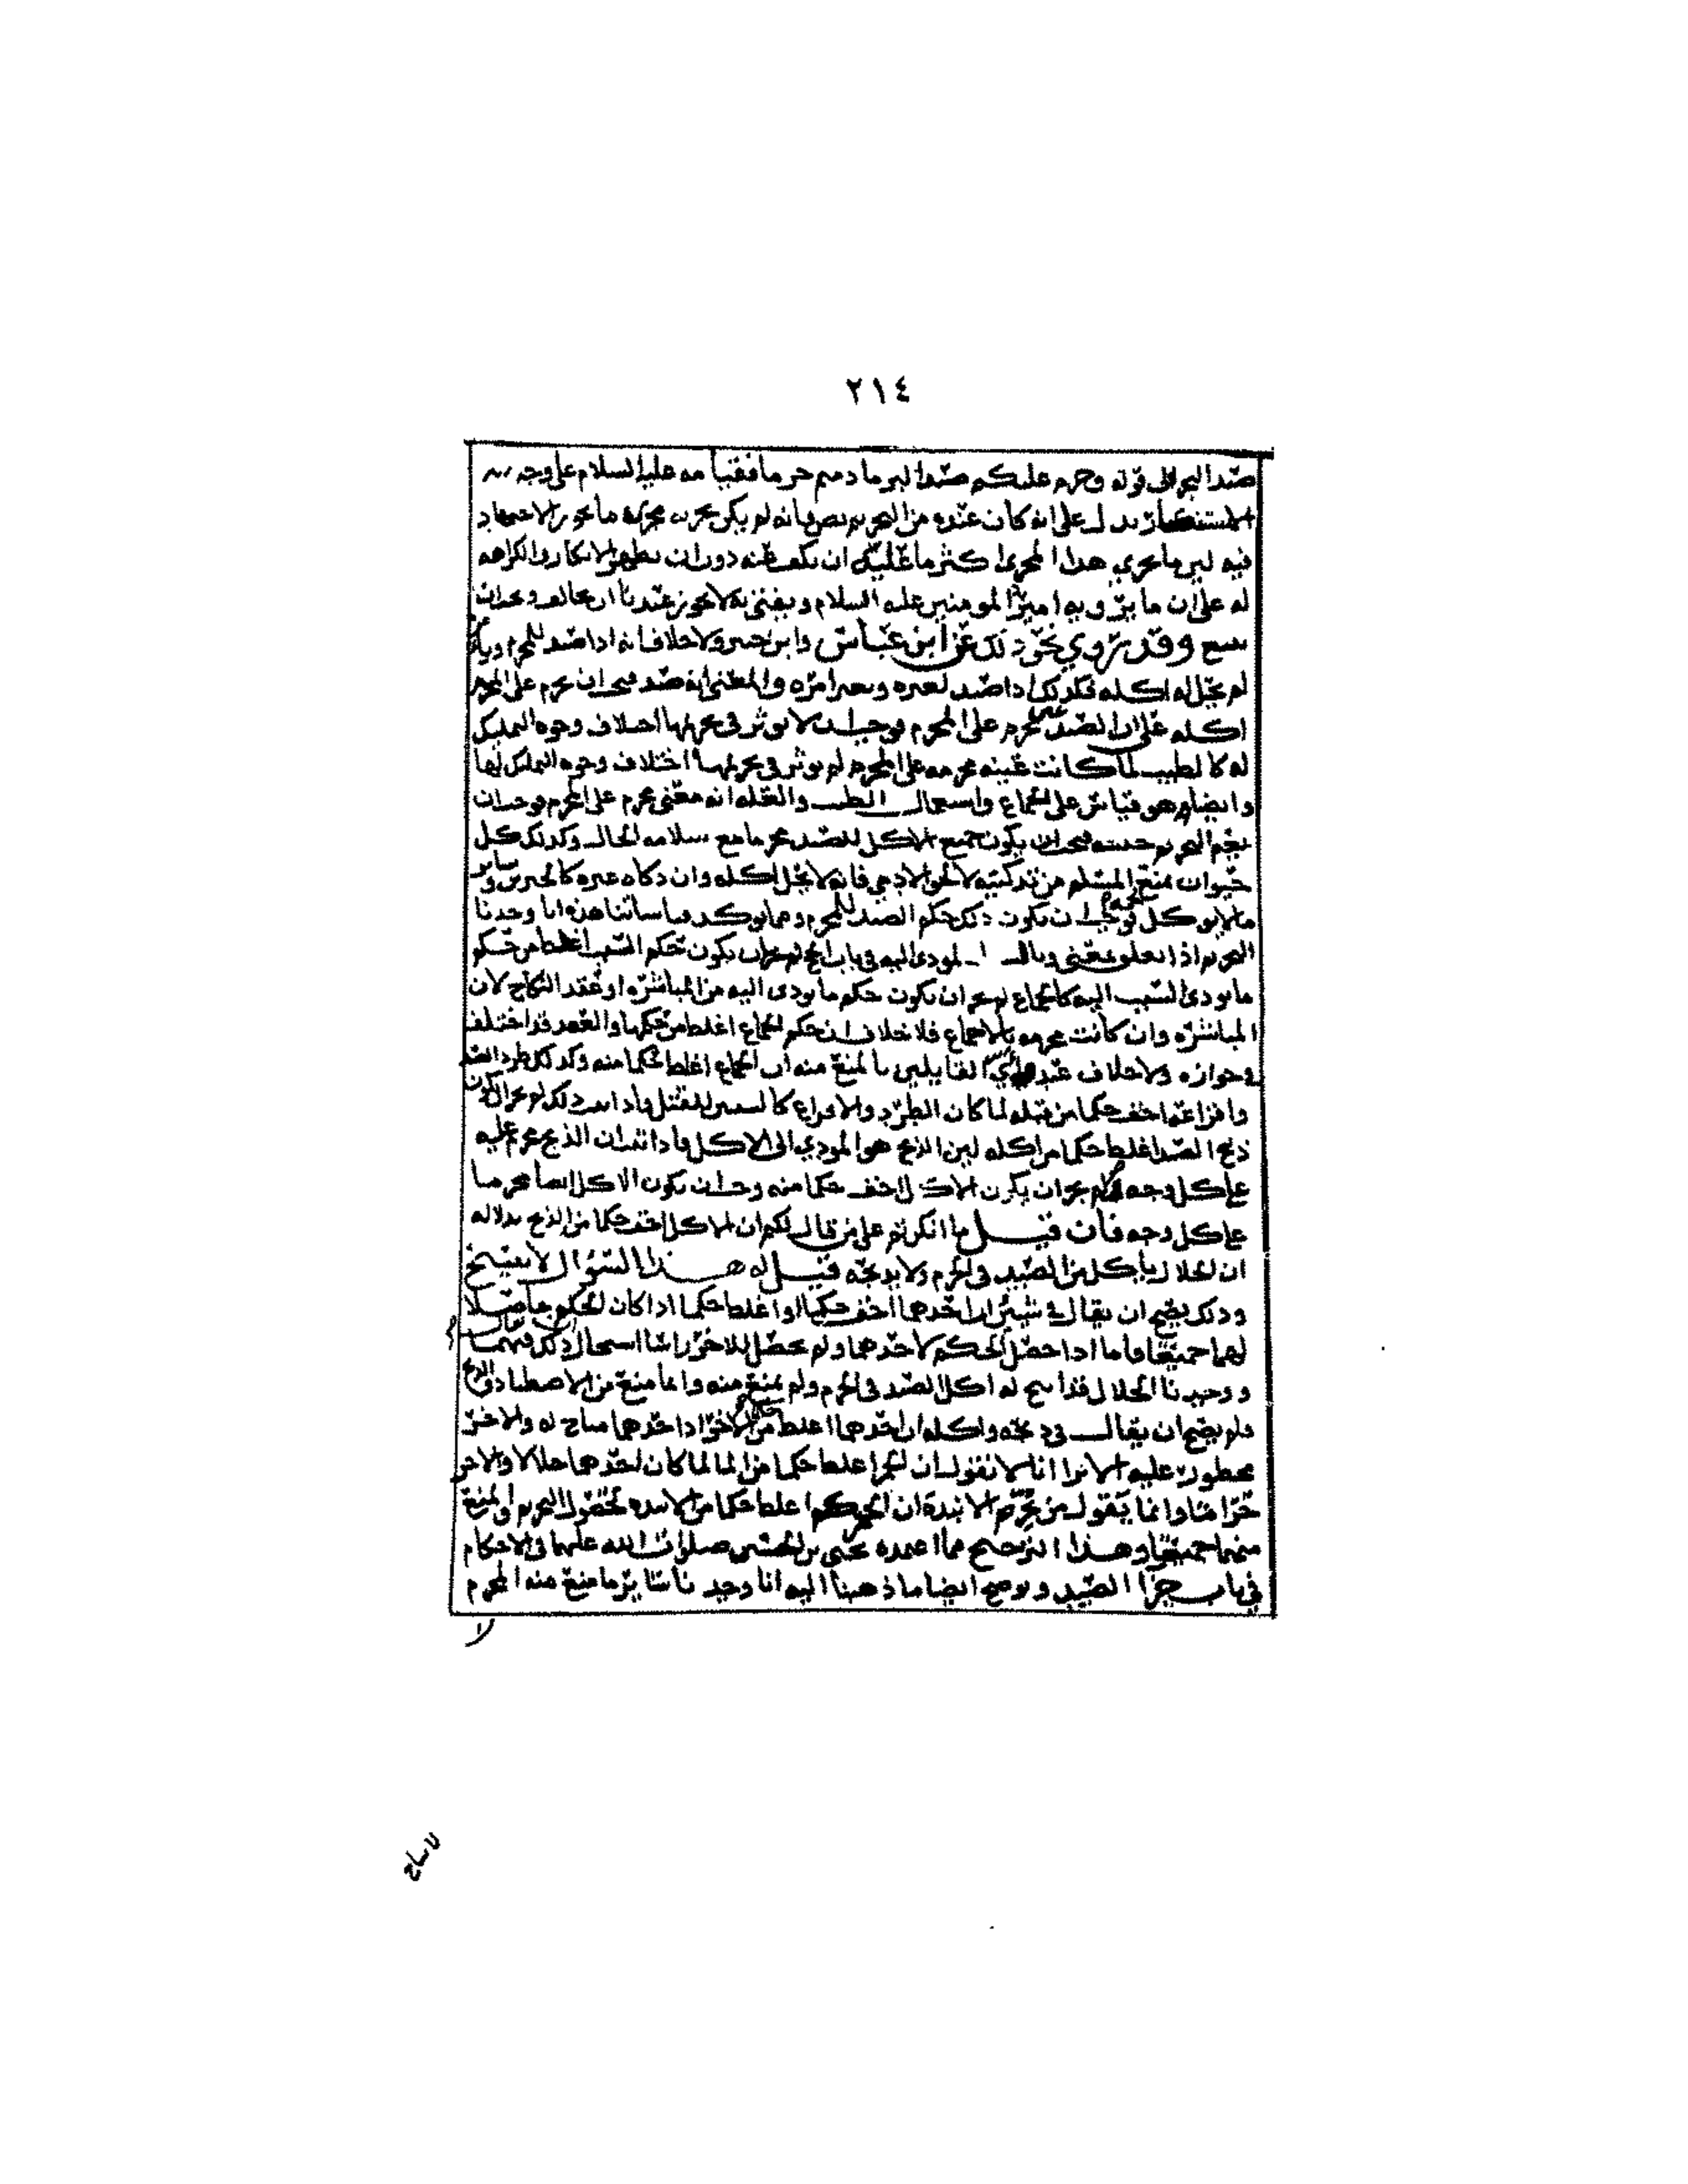 ٢١٤
صيد البحر الى قوله وحرم عليكم صيد البر ما دمتم حرما فقيامه عليه السلام على وجه
الاستنكار يدل على انه كان عنده من التحريم نص وانه لم يكن يجرى مجرى ما يجوز الاجتهاد
فيه لين ما يجري هذا المجرى اكثر ما عليه ان يكف عنه دون ان يظهر الانكار والكراهه
له على ان ما يرويه امير المومنين عليه السلام ويفتي به لا يجوز عندنا ان يخالف ويجب ان
يتبع وقد روي نحو ذلك عن ابن عباس وابن ولا خلاف انه اذا صيد للمحرم
لم يحل له اكله فكذلك اذا صيد لغيره وبغير امره والمعنى انه صيد فيجب ان يحرم على المحرم
اكله على ان الصيد محرم على المحرم فوجب ان لا يوثر في تحريمها اختلاف وجوه التمليك
له كالطيب لما كانت عينه محرمه على المحرم لم يوثر في تحريمها اختلاف وجوه التمليك لها
وايضا فهو قياس على الجماع واستعمال الطيب والقبله انه معنى محرم على المحرم فوجب ان
يعم التحريم جنسه فيجب ان يكون جميع الاكل للصيد محرما مع سلامه الحال وكذلك كل
حيوان منع المسلم من تذكيته لا لحق الادمي فانه لا يحل اكله وان ذكاه غيره كالخنزير وساير
ما لا يوكل لحمه فوجب ان يكون ذلك حكم الصيد للمحرم ومما يوكد قياساتنا هذه انا وجدنا
التحريم اذا تعلق بمعنى المودي اليه في باب الحج لم يجز ان يكون حكم السبب اغلظ من حكم
ما يودي السبب اليه كالجماع لم يجز ان يكون حكم ما يودى اليه من المباشره او عقد النكاح لان
المباشره وان كانت محرمه بالاجماع فلا خلاف ان حكم الجماع اغلظ من حكمها والعقد قد اختلف
في جوازه ولا خلاف عند القايلين بالمنع منه ان الجماع اغلظ حكما منه وكذلك طرد الصيد
وافزاعه اخف حكما من قتله لما كان الطرد والافزاع كالسبب للقتل فاذا ثبت ذلك لم يجز ان يكون
ذبح الصيد اغلظ حكما من اكله لين الذبح هو المودي الى الاكل فاذا ثبت ان الذبح محرم عليه
على كل وجه لم يجز ان يكون الاكل اخف حكما منه وجب ان يكون الاكل ايضا محرما
على كل وجه فان قيل ما انكرتم على من قال لكم ان الاكل اخف حكما من الذبح بدلاله
ان الحلال ياكل من الصيد في الحرم ولا يذبحه قيل له هذا السوال لا يصح
وذلك يصح ان يقال في شيئين ان احدهما اخف حكما او اغلظ حكما اذا كان الحكم حاصلا
لهما جميعا فاما اذا حصل الحكم لاحدهما ولم يحصل للاخر راسا استحال ذلك فيهما
ووجدنا الحلال قد ابيح له اكل الصيد في الحرم ولم يمنع منه وانما منع من الاصطياد والذبح
فلم يصح ان يقال في ذبحه واكله ان احدهما اغلظ من الاخر اذ احدهما مباح له والاخر
محظور عليه الا ترا انا لا نقول ان الخمر اغلظ حكما من الما لما كان احدهما حلالا والاخر
حراما وانما يقول من يحرم الانبذة ان الخمر اغلظ حكما من الانبذه لحصول التحريم والمنع
منهما جميعا وهذا الترجيح مما اعتمده يحيى بن الحسين صلوات الله عليهما في الاحكام
في باب جزا الصيد ويوضح ايضا ما ذهبنا اليه انا وجدنا ساير ما منع منه المحرم
لا
لا يباح